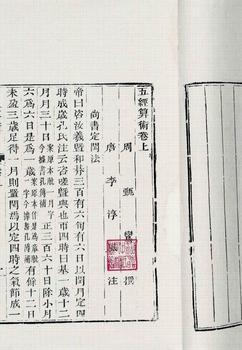 五經算術卷上
周 甄鸞 撰
唐 李淳風 注
尚書定閏法
帝曰咨汝羲暨和朞三百六旬有六日以閏月定四
時成歲孔氏注云咨嗟暨與也帀四時曰朞一歲十二
月月三十日案原本脫一月字今據書孔傳補正三百六十日除小月
六爲六日是爲歲有餘十二日
未盈三歲足得一月則置閏焉以定四時之氣節成一